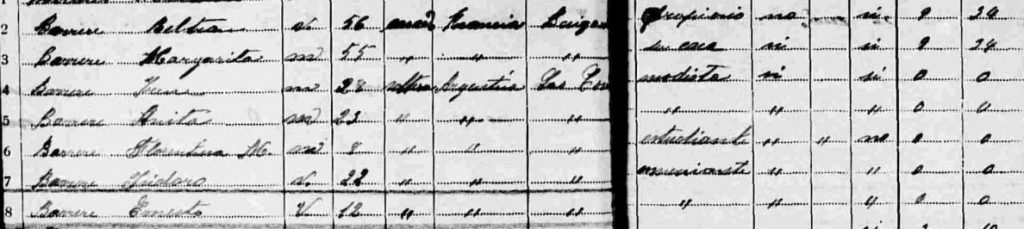 2 Barrere Beltran v. 56 casado Francia propietario no si 9 24
3 Barrere Margarita m 55 " " " su casa si si 9 24
4 Barrere Irene m 28 soltera Argentina modista si si 0 0
5 Barrere Anita m 23 " " " " " " 0 0
6 Barrere Florentina M. m 8 " " " estudiante " " no 0 0
7 Barrere Isidoro v. 22 " " " " " 0 0
8 Barrere Ernesto V. 12 " " " " " " 0 0